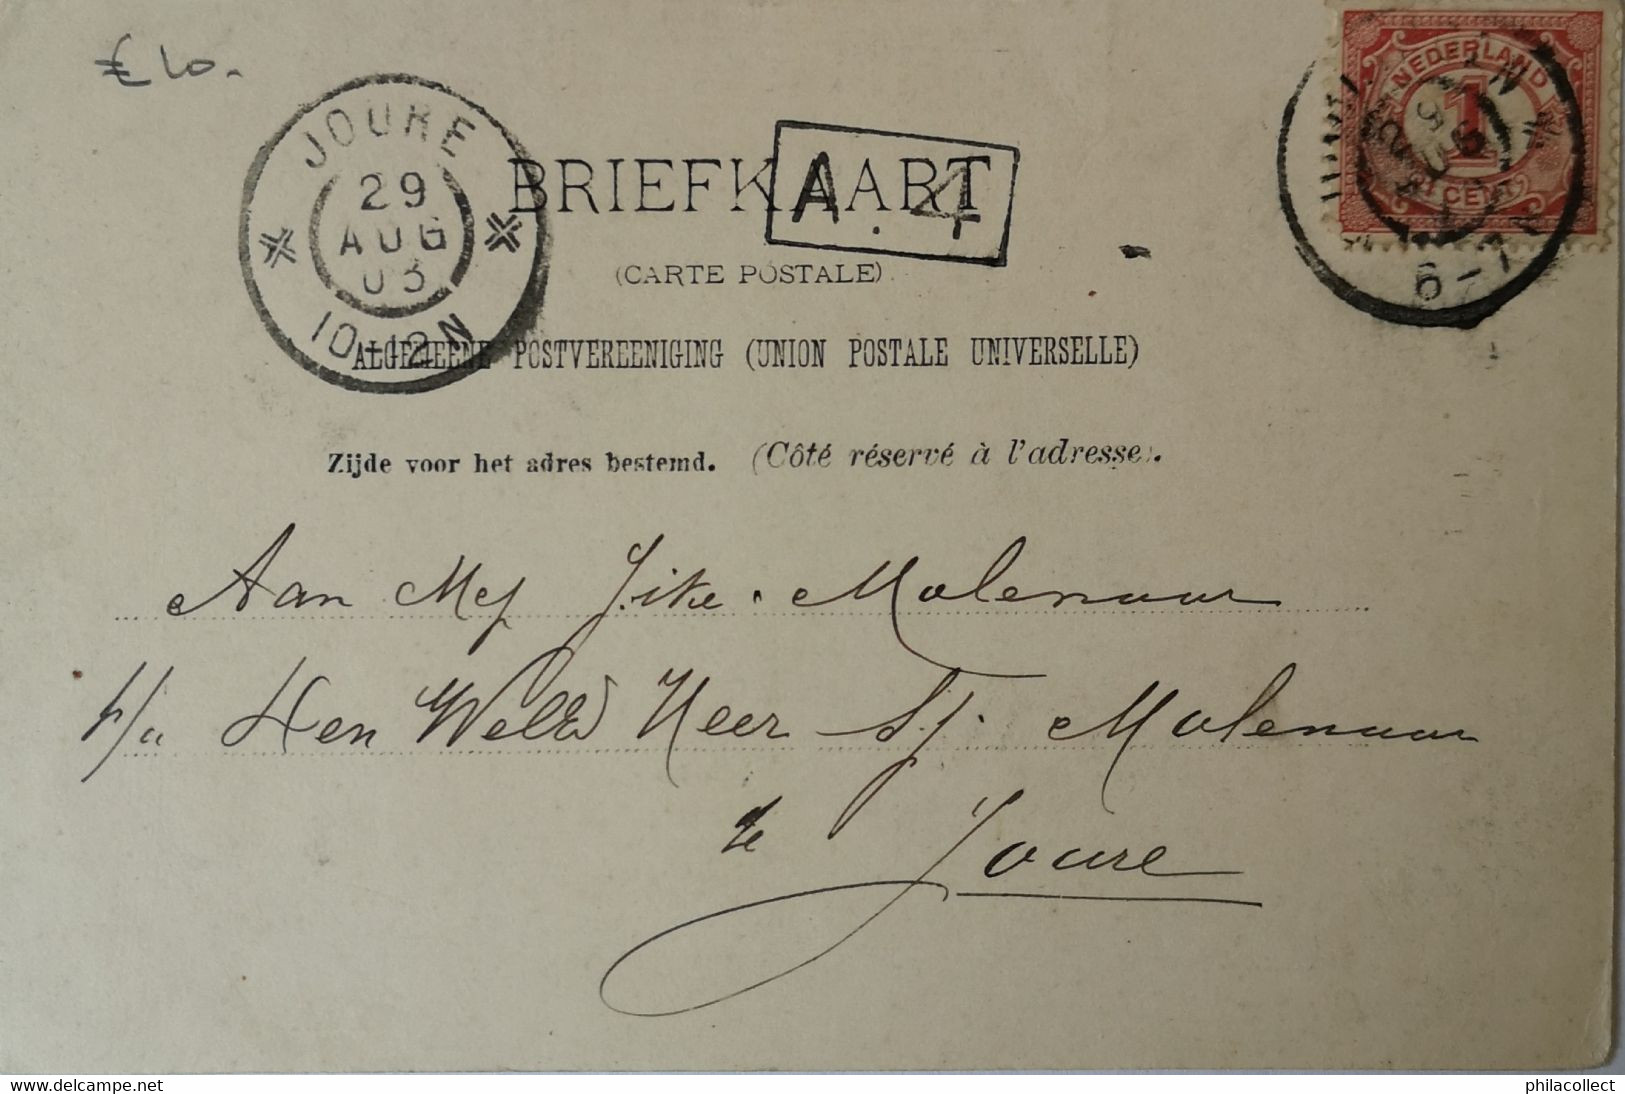 € 10.
NEDERLAND
1
CENT
JOURE
29
AUG
03
10-12N
6-7N
BRIEFKAART
A. 4
(CARTE POSTALE)
ALGEMEENE POSTVEREENIGING (UNION POSTALE UNIVERSELLE)
Zijde voor het adres bestemd. (Côté réservé à l'adresse).
Aan Mej Jitke. Molenaar
p/a Den Weled Heer Sj. Molenaar
te Joure
philacollect